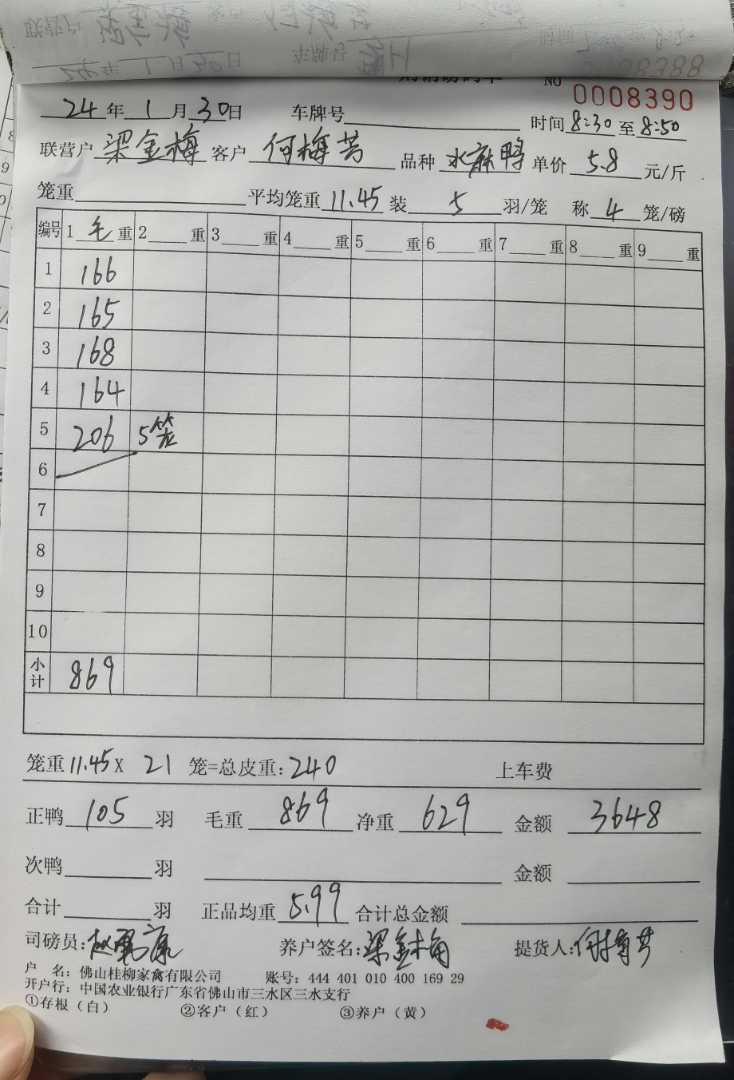 NO
0008388
0008390
24年1月30日 车牌号
时间8:30至8:50
联营户梁金梅 客户 何梅芳 品种水麻鸭 单价 5.8 元/斤
笼重 平均笼重11.45 装 5 羽/笼 称 4 笼/磅
编号 1 毛 重 2 重 3 重 4 重 5 重 6 重 7 重 8 重 9 重
1 166
2 165
3 168
4 164
5 206 5笼
6
7
8
9
10
小计 869
笼重11.45X 21 笼=总皮重:240 上车费
正鸭 105 羽 毛重 869 净重 629 金额 3648
次鸭 羽 金额
合计 羽 正品均重 5.99 合计总金额
司磅员: 养户签名:梁金梅 提货人:何梅芳
户 名: 佛山桂柳家禽有限公司 账号: 444 401 010 400 169 29
开户行: 中国农业银行广东省佛山市三水区三水支行
①存根(白) ②客户(红) ③养户(黄)